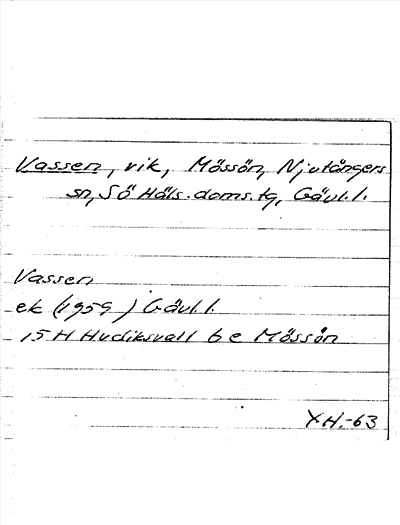 Vassen, vik, Mössön, Njutångers
sn, SÖ Häls. doms.tg, Gävl.l.
Vassen
ek (1959) Gävl.l.
15 H Hudiksvall 6 e Mössön
YH.-63